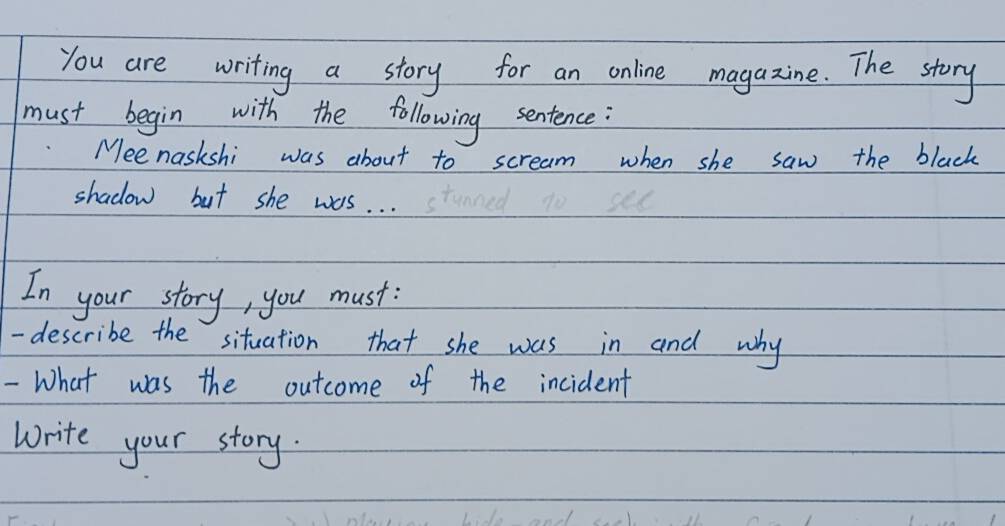 You are writing a story for an online magazine. The story
must begin with the following sentence:
Meenaskshi was about to scream when she saw the black
shadow but she was... stunned to see
In your story, you must:
- describe the situation that she was in and why
- What was the outcome of the incident
Write your story.
playing hide-and seek with